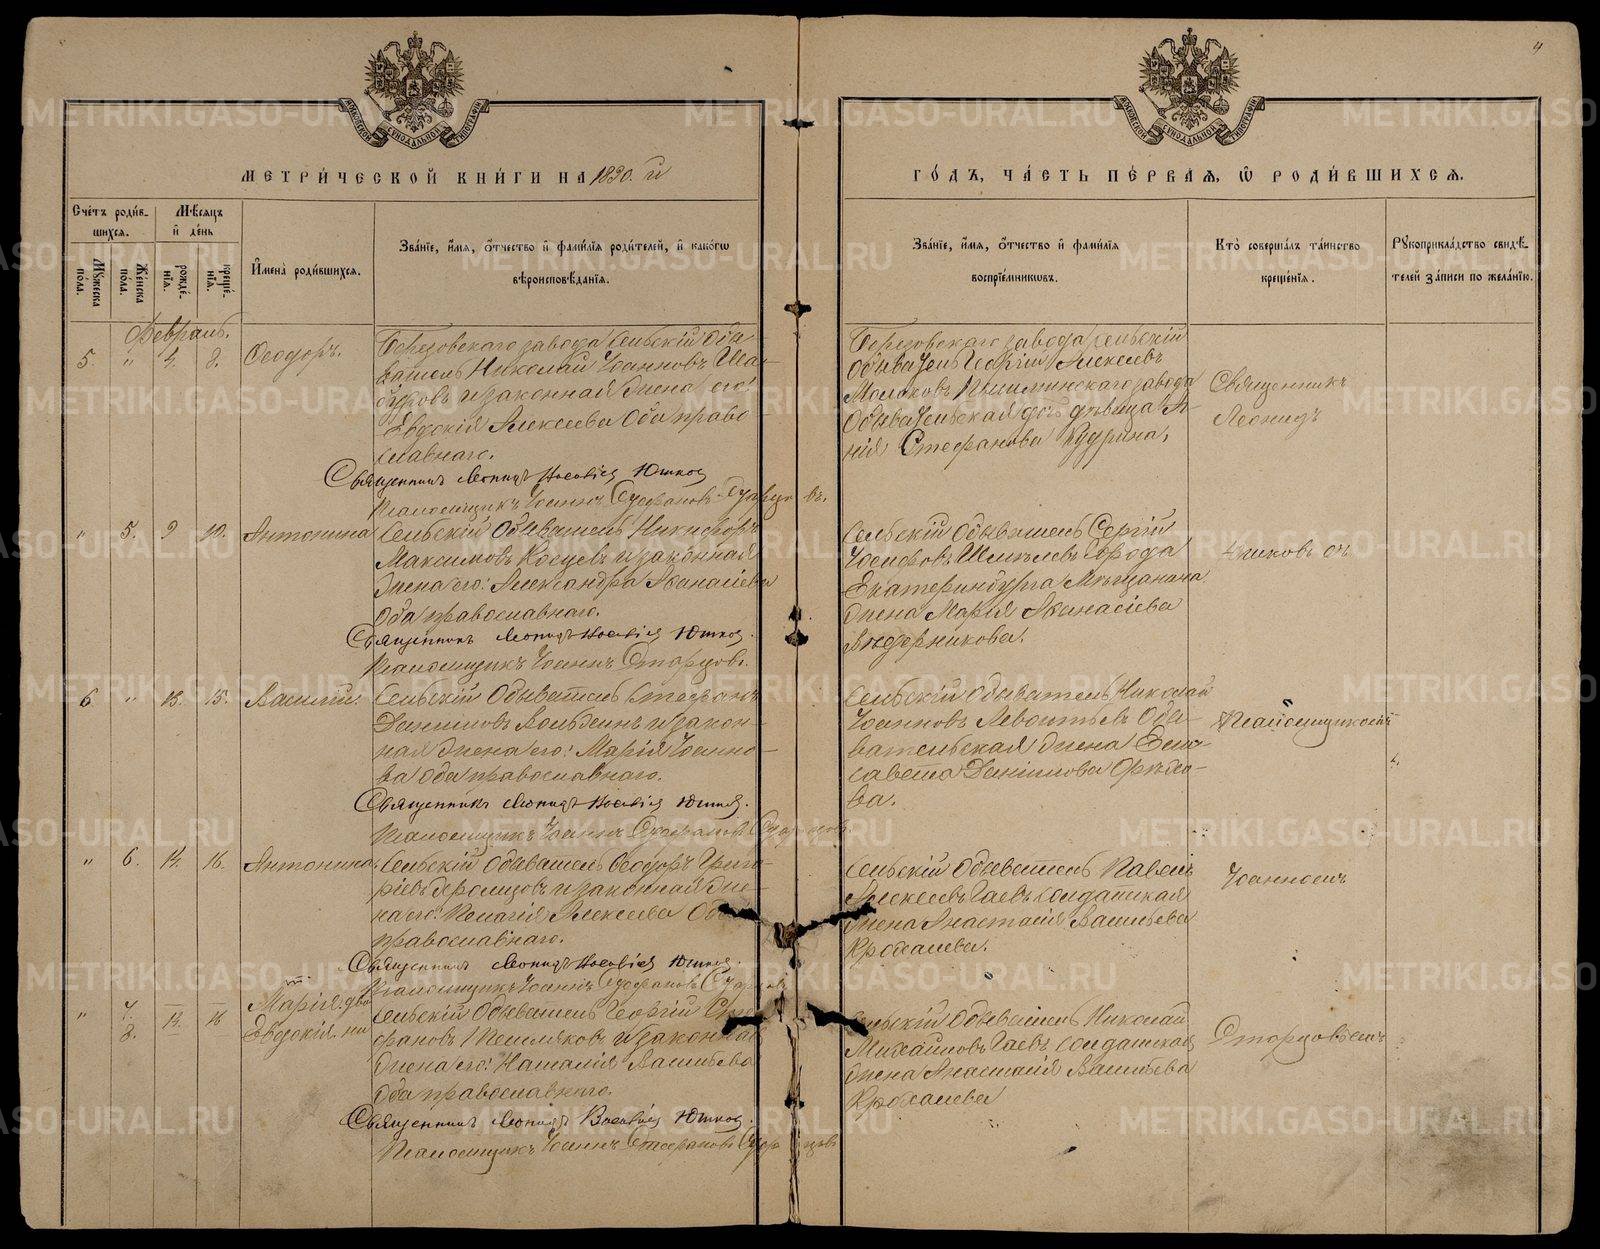 4
МОСКОВСКОЙ СѴНОДАЛЬНОЙ ТИПОГРАФІИ
МОСКОВСКОЙ СѴНОДАЛЬНОЙ ТИПОГРАФІИ
МЕТРИ́ЧЕСКОЙ КНИ́ГИ НА 1890. й
ГО́ДЪ, ЧА́СТЬ ПЕ́РВАѦ, Ѡ РОДИ́ВШИХСѦ.
Сче́тъ роди́вшихсѧ.
Мꙋ́жеска по́ла.
Же́нска по́ла.
Мѣ́сѧцъ и҆ де́нь
рожде́нїѧ.
креще́нїѧ.
И҆мена̀ роди́вшихсѧ.
Зва́нїе, и҆́мѧ, о҆́тчество и҆ фами́лїѧ роди́телей, и҆ како́гѡ
вѣроисповѣ́данїѧ.
Зва́нїе, и҆́мѧ, о҆́тчество и҆ фами́лїѧ
воспрїе́мникѡвъ.
Кто̀ соверша́лъ та́инство
креще́нїѧ.
Рꙋкоприкла́дство свидѣ́телей за́писи по жела́нїю.
Февраль.
5. " 4. 8. Ѳеодоръ.
Березовскаго завода Сельскій Обы-
ватель Николай Іоанновъ
и законная жена его:
Евдокія Алексеева Оба право
славнаго.
Священникъ Леонидъ Юшков
Псаломщикъ Іоаннъ Стефановъ Старцовъ.
Березовскаго завода Сельскій
Обыватель Георгій Алексеевъ
Молоковъ Пышминскаго завода
Обывательская дочь девица
Стефанова Кудрина,
Священникъ
Леонидъ
" 5. 9 10. Антонина
Сельскій Обыватель Никифоръ
Максимовъ и законная
жена его: Александра Афанасіева
Оба православнаго.
Священникъ Леонидъ Юшков.
Псаломщикъ Іоаннъ Старцовъ.
Сельскій Обыватель Сергій
Іосифовъ Города
Екатеринбурга Мѣщанина
жена Марія Афанасіева
Юшковъ съ
6 " 13. 15. Василій.
Сельскій Обыватель Стефанъ
Даниловъ и закон-
ная жена его: Марія Іоанно-
ва Оба православнаго.
Священникъ Леонидъ Юшков.
Псаломщикъ Іоаннъ Стефановъ Старцовъ
Сельскій Обыватель Николай
Іоанновъ Левонтьевъ Обы-
вательская жена Ели-
савета Данилова
ва.
Псаломщикомъ
" 6. 14. 16. Антонина
Сельскій Обыватель Ѳеодоръ Григо-
ріевъ и законная же-
на его: Пелагія Алексеева Оба
православнаго.
Священникъ Леонидъ Юшков.
Псаломщикъ Іоаннъ Стефановъ Старцовъ
Сельскій Обыватель Павелъ
Алексеевъ Гаевъ Солдатская
жена Анастасія Васильева
Крохалева.
Іоанномъ
" 7. 8. 14. 16 Марія Евдокія двойни
Сельскій Обыватель Георгій Сте-
фановъ и законная
жена его: Наталія Васильева
Оба православнаго.
Священникъ Леонидъ Юшков.
Псаломщикъ Іоаннъ Стефановъ Старцовъ
Сельскій Обыватель Николай
Михайловъ Гаевъ Солдатская
жена Анастасія Васильева
Крохалева
Старцовымъ
METRIKI.GASO-URAL.RU